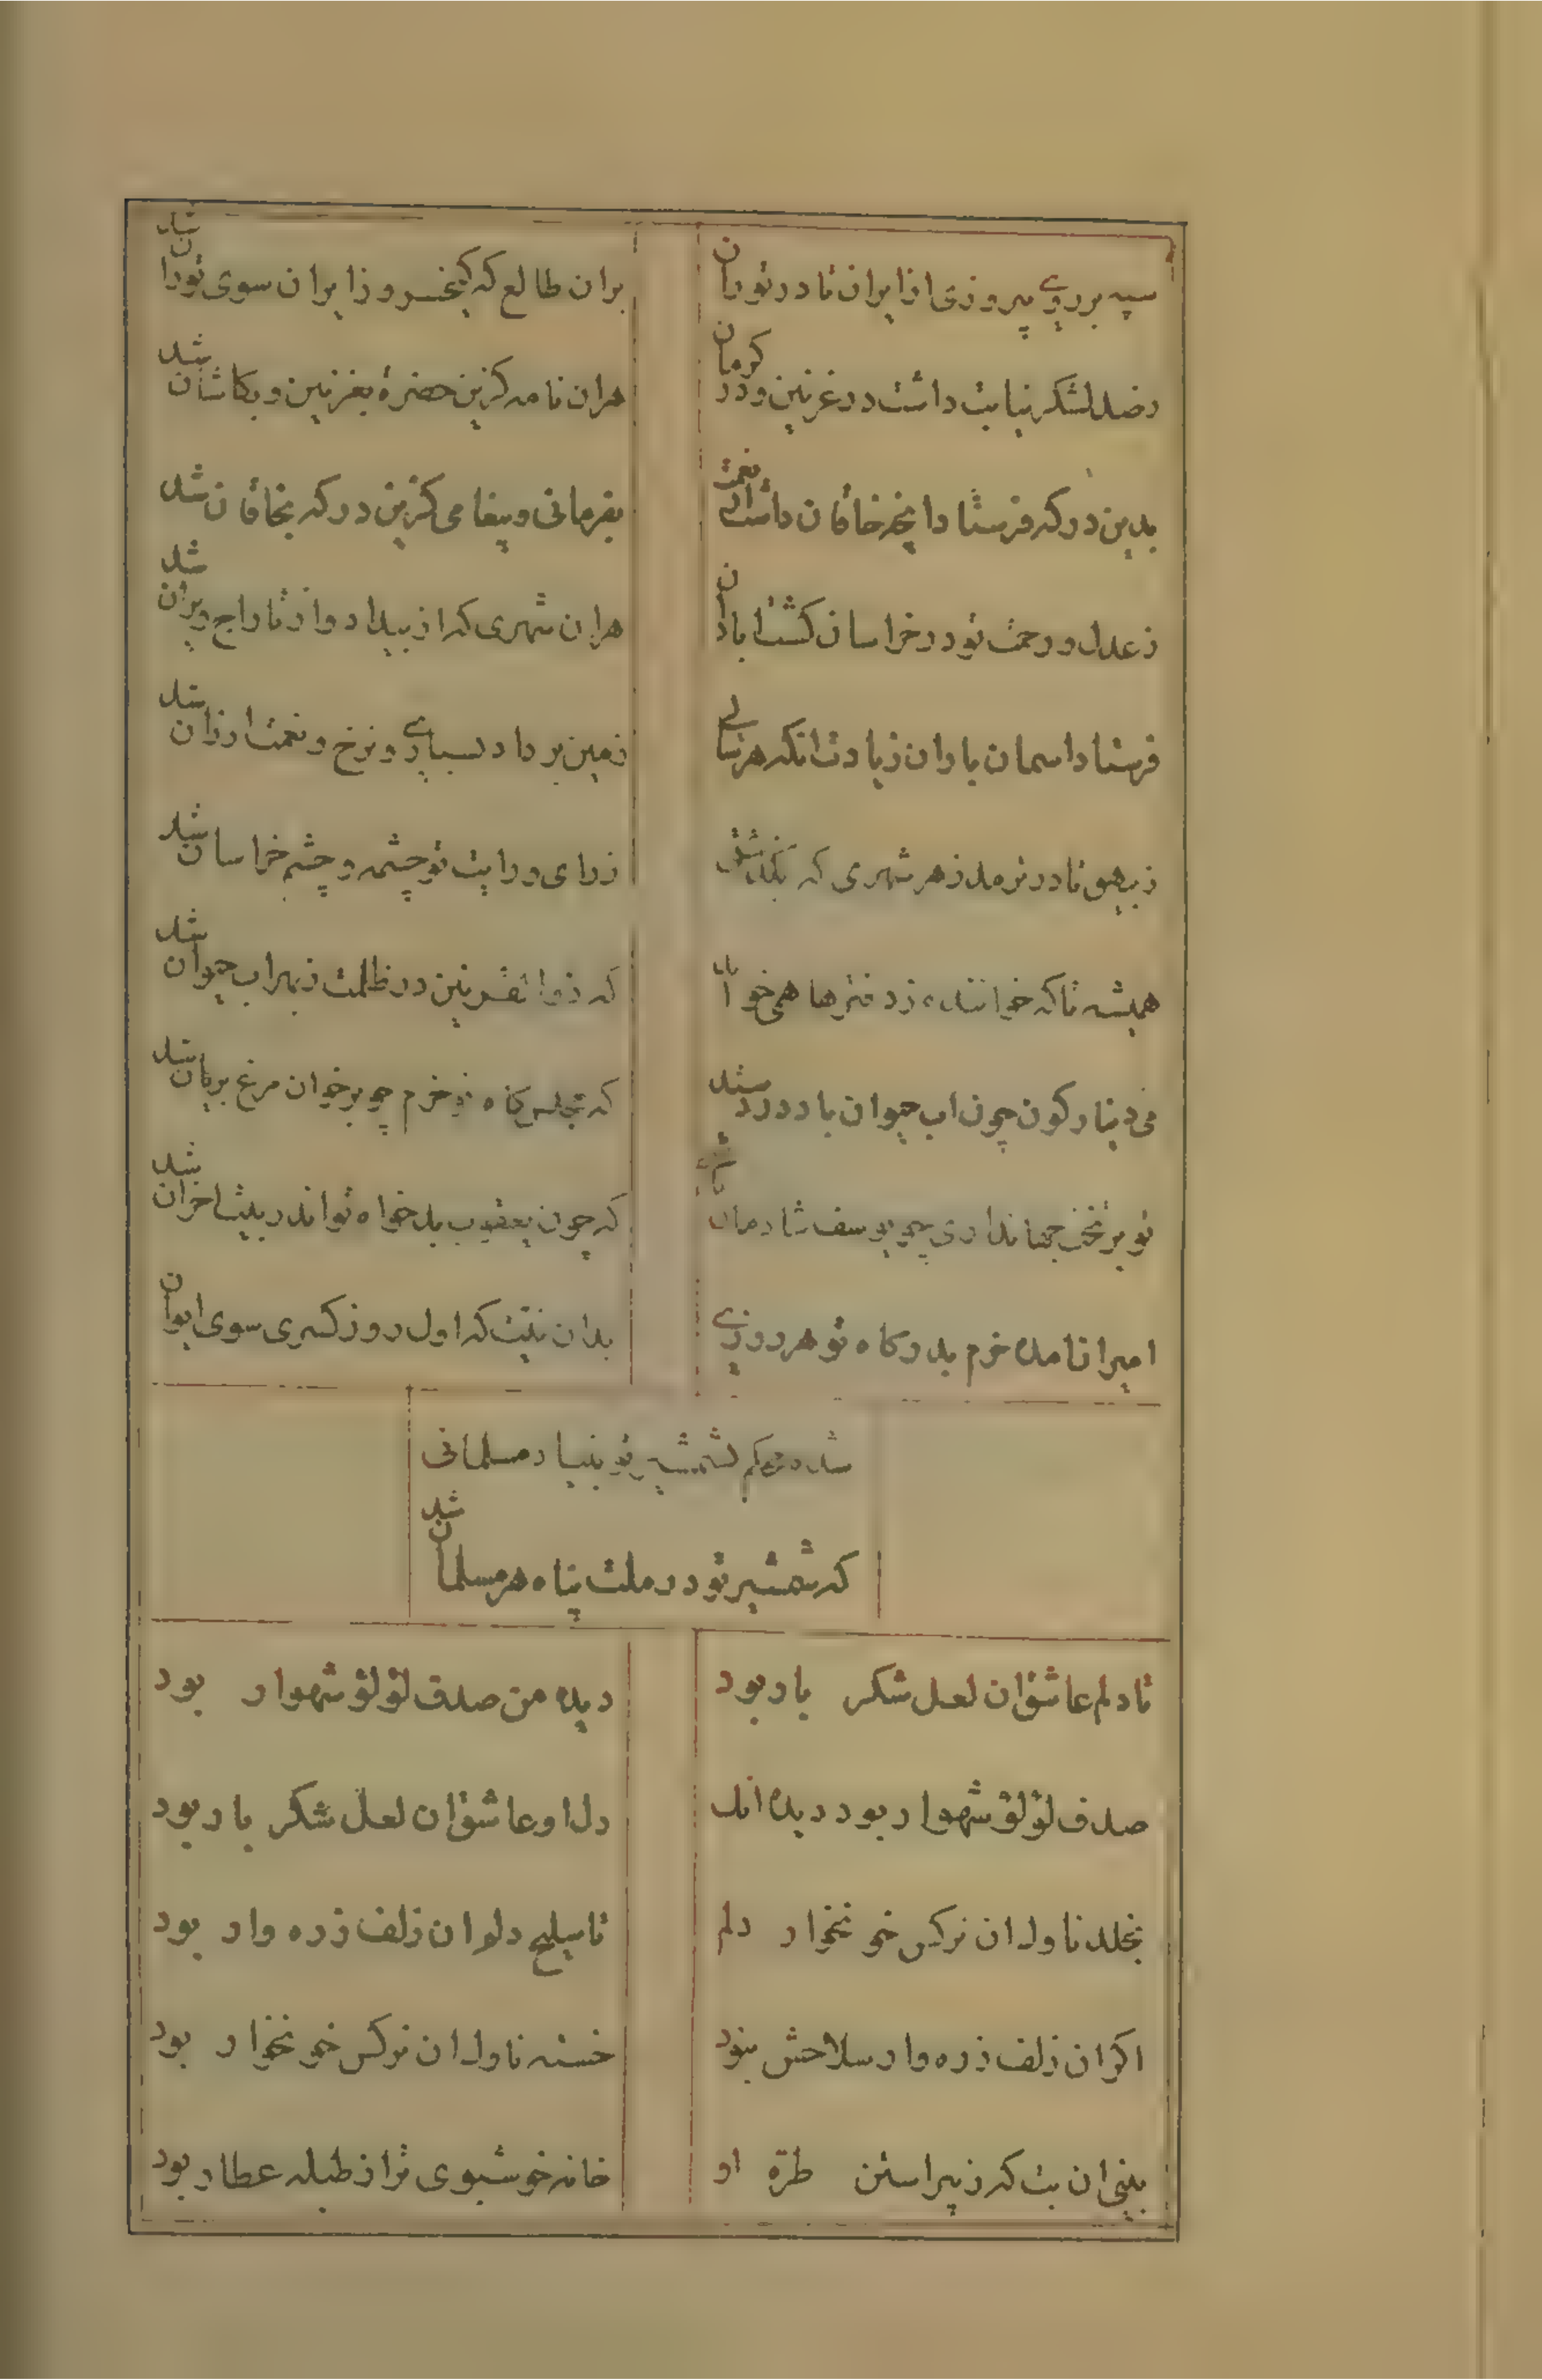 سپه بردی پیروزی از ایران تا در توران
بران طالع که کیخسرو ز ایران سوی توران شد
ز صد لشکر نیابت داشت در غزنین و در کرمان
هران نامه کزین حضرة بغزنین و بکاشان شد
بدین درکه فرستاد انچه خاقان داشت از نعمت
بفرمانی و پیغامی کزین درکه بخاقان شد
ز عدل و رحمت تو در خراسان کشت ابادان
هران شهری که از بیداد و از تاراج ویران شد
فرستاد اسمان باران زیادت انکه هر سالی
زمین بر داد بسیاری و نرخ و نعمت ارزان شد
ز بیهق تا در ترمد ز هر شهری که
ز رای و رایت تو چشمه و چشم خراسان شد
همیشه تا که خواننده ز دفترها همی خواند
که ذوالقرنین در ظلمت ز بهر اب حیوان شد
می دینار کون چون اب حیوان باد در دستت
که مجلس کاه تو خرم چو بر خوان مرغ بریان شد
تو بر تخت جهانداری چو یوسف شادمان
که چون یعقوب بدخواه تو اندر بیت احزان شد
امیرانامده خرم بدرکاه تو هر روزی
بدان نیت که اول روز کسری سوی ایوان
شده محکم بشمشیر تو بنیاد مسلمانی
که شمشیر تو در ملت پناه هر مسلمان شد
تا دلم عاشق ان لعل شکر بار بود
دیده من صدف لؤلؤ شهوار بود
صدف لؤلؤ شهوار بود دیده انک
دل او عاشق ان لعل شکر بار بود
بخلد ناوک ان نرکس خونخوار دلم
تا سلیح دلم ان زلف زره وار بود
اکر ان زلف زره وار سلاحش نبود
خسته ناوک ان نرکس خونخوار بود
بینی ان بت که ز پیراستن طرّه او
خانه خوشبوی تر از طبله عطار بود